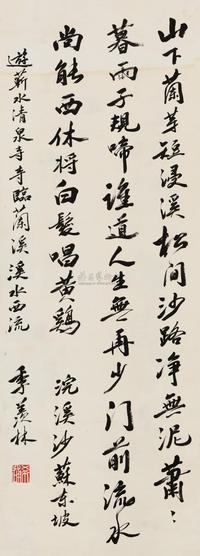 山下蘭芽短浸溪松間沙路净無泥蕭〻
暮雨子規啼誰道人生無再少门前流水
尚能西休将白髮唱黄鷄 浣溪沙蘇东坡
遊蘄水清泉寺寺臨蘭溪溪水西流
季羡林